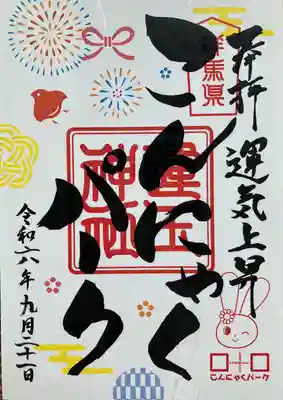 奉拝 運気上昇
群馬県
こんにゃく
パーク
神社
令和六年九月二十一日
こんにゃくパーク